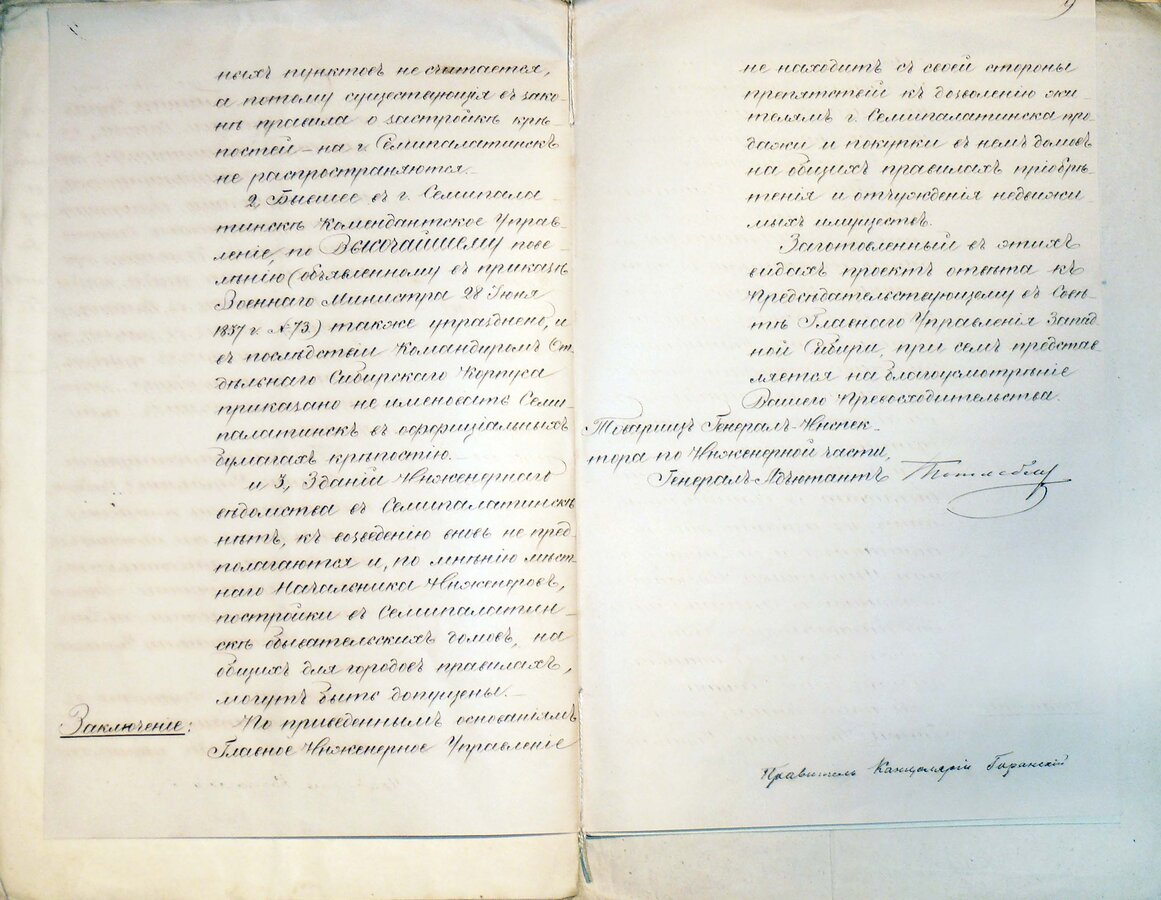 ныхъ пунктовъ не считается,
а потому существующія въ зако-
нѣ правила о застройкѣ крѣ-
постей – на г. Семипалатинскъ
не распространяются. –
2, Бывшее въ г. Семипала-
тинскѣ Комендантское Управ-
леніе, по Высочайшему пове-
лѣнію (объявленному въ приказѣ
Военнаго Министра 28 Іюня
1857 г. № 73.) также упразднено, и
въ послѣдствіи Командиромъ От-
дѣльнаго Сибирскаго Корпуса
приказано не именовать Семи-
палатинскъ въ оффиціальныхъ
бумагахъ крѣпостію. –
и 3, Зданій Инженернаго
вѣдомства въ Семипалатинскѣ
нѣтъ, къ возведенію вновь не пред-
полагаются и, по мнѣнію мѣст-
наго Начальника Инженеровъ,
постройки въ Семипалатин-
скѣ обывательскихъ домовъ, на
общихъ для городовъ правилахъ,
могутъ быть допущены. –
Заключеніе:
По приведеннымъ основаніямъ
Главное Инженерное Управленіе
9
не находитъ съ своей стороны
препятствій къ дозволенію жи-
телямъ г. Семипалатинска про-
дажи и покупки въ немъ домовъ
на общихъ правилахъ пріобрѣ-
тенія и отчужденія недвижи-
мыхъ имуществъ.
Заготовленный въ этихъ
видахъ проектъ отвѣта къ
Предсѣдательствующему въ Совѣ-
тѣ Главнаго Управленія Запад-
ной Сибири, при семъ представ-
ляется на благоусмотрѣніе
Вашего Превосходительства.
Товарищъ Генералъ-Инспек-
тора по Инженерной части,
Генералъ-Адъютантъ Тотлебенъ
Правитель Канцеляріи Гаранскій